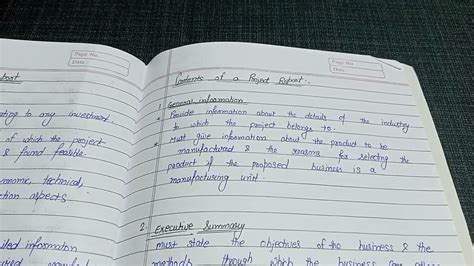 Page No.
Date :
port
ting to any investment.
of which the project
& found feasible.
nomic, technical,
tion aspects.
iled information
Page No.
Date :
Contents of a Project Report.
1. General information
* Provide information about the details of the industry
to which the project belongs to.
* Must give information about the product to be
manufactured & the reasons for selecting the
product if the proposed business is a
manufacturing unit.
2. Executive Summary
must state the objectives of the business & the
methods through which the business can